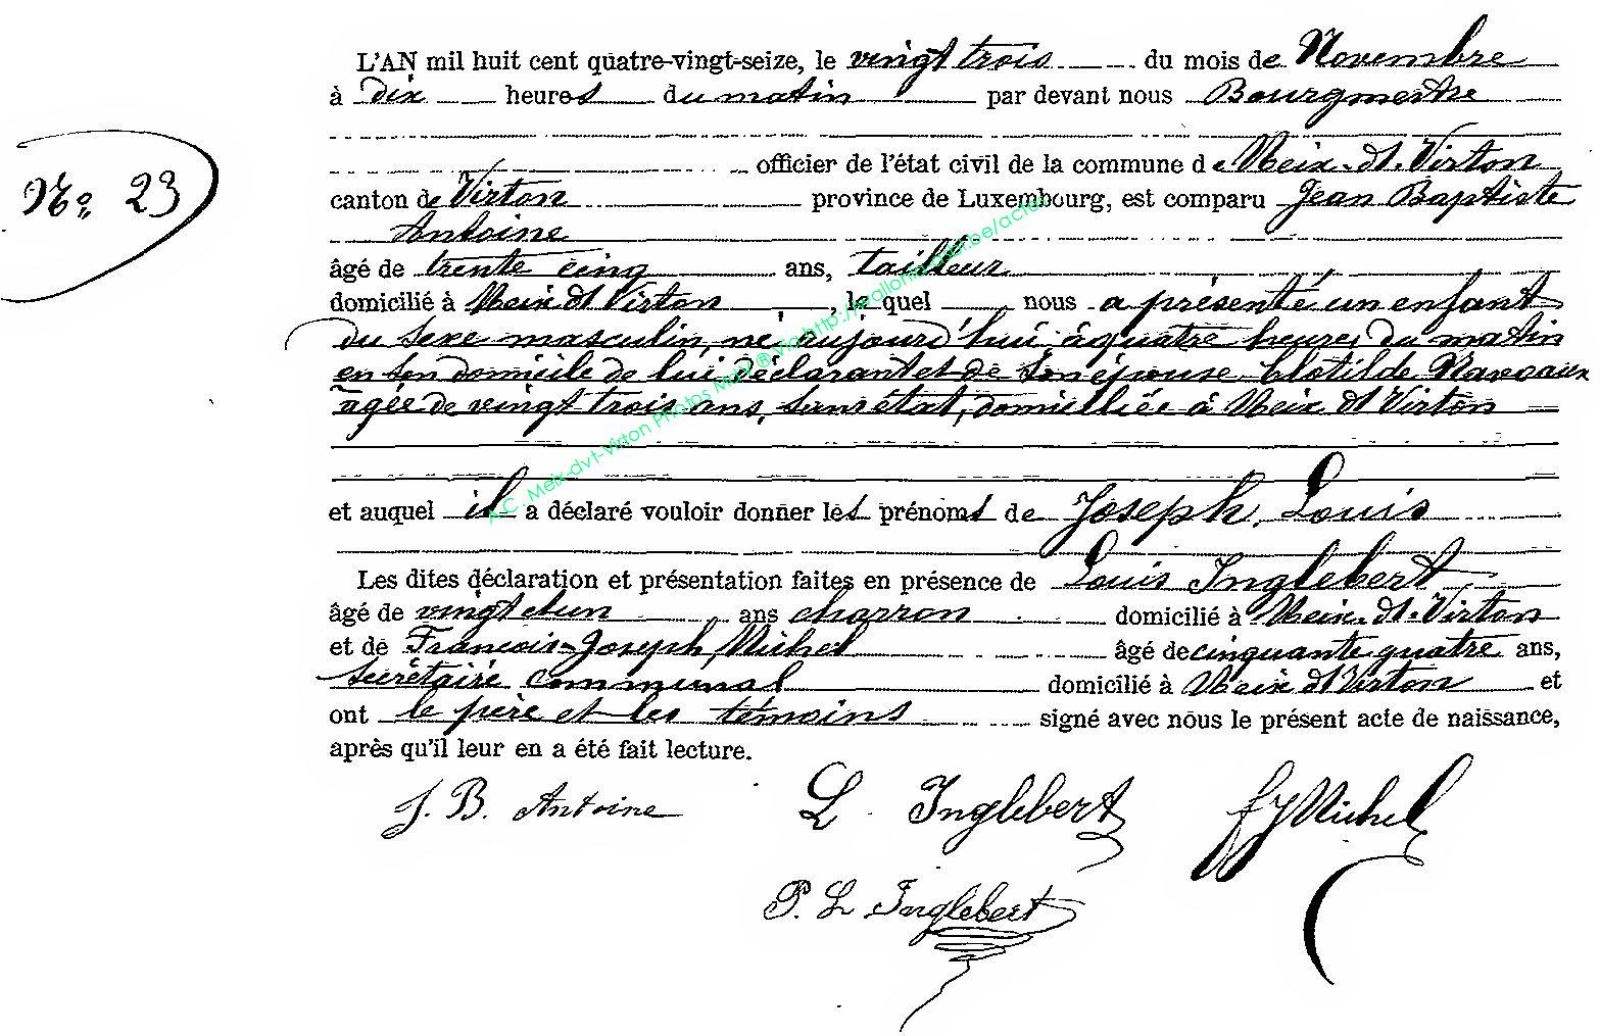 L'AN mil huit cent quatre-vingt-seize, le vingt trois du mois de Novembre
à dix heures du matin par devant nous Bourgmestre
officier de l'état civil de la commune de Meix-dt-Virton
No. 23
canton de Virton province de Luxembourg, est comparu Jean Baptiste
Antoine
âgé de trente cinq ans, tailleur
domicilié à Meix dt Virton, lequel nous a présenté un enfant
du sexe masculin, né, aujourd'hui à quatre heures du matin
en son domicile de lui déclarant et de son épouse Clotilde
agée de vingt trois ans, sans état, domiciliée à Meix dt Virton
et auquel il a déclaré vouloir donner les prénoms de Joseph, Louis
Les dites déclaration et présentation faites en présence de Louis Inglebert,
âgé de vingt et un ans charron domicilié à Meix-dt-Virton
et de François-Joseph Michel âgé de cinquante quatre ans,
secrétaire communal domicilié à Meix dt Virton et
ont le père et les témoins signé avec nous le présent acte de naissance,
après qu'il leur en a été fait lecture.
J. B. Antoine L. Inglebert f J Michel
P. L. Inglebert
A.C. Meix-dvt-Virton Photos